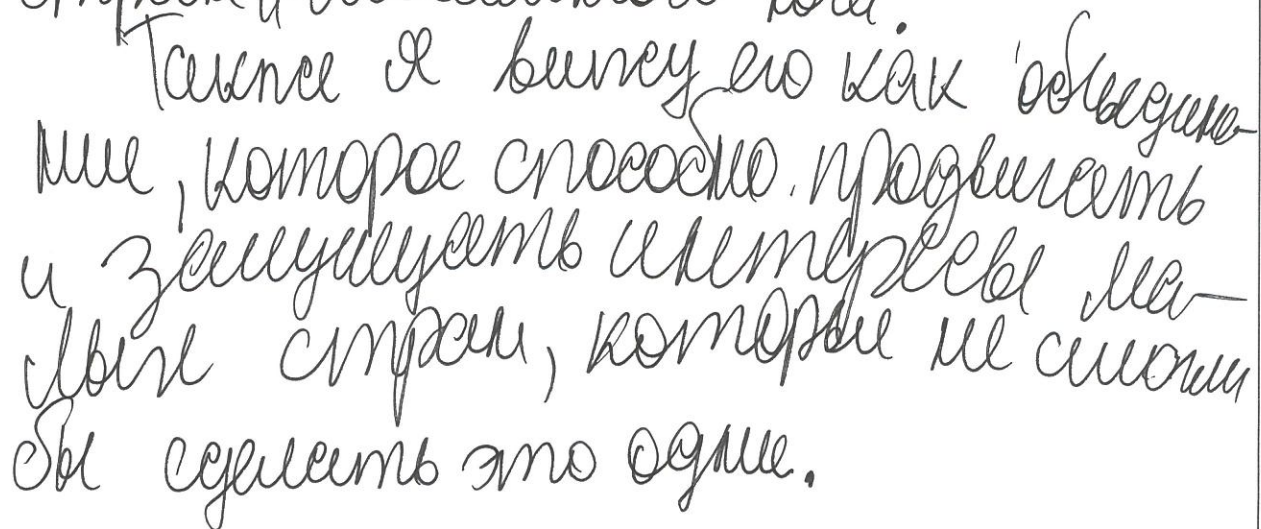 Также я вижу его как объедине-
ние, которое способно продвигать
и защищать интересы ма-
лых стран, которые не смогли
бы сделать это одни.